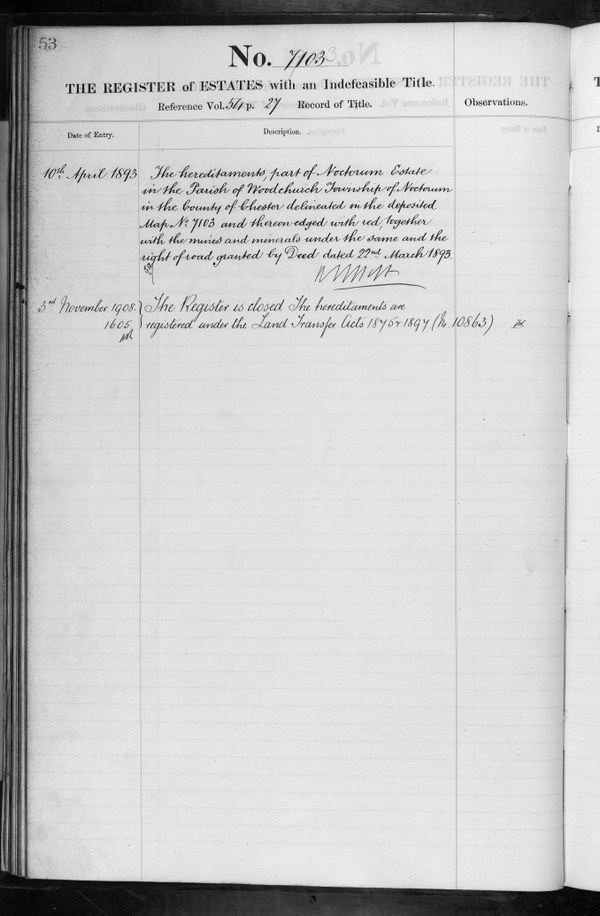 53
No. 7103
THE REGISTER of ESTATES with an Indefeasible Title.
Reference Vol. 54 p. 27 Record of Title.
Observations.
Date of Entry.
Description.
10th April 1893
The hereditaments, part of Noctorum Estate
in the Parish of Woodchurch Township of Noctorum
in the County of Chester delineated in the deposited
Map No 7103 and thereon edged with red, together
with the mines and minerals under the same and the
right of road granted by Deed dated 22nd March 1893.
3rd November 1908.
1605
The Register is closed The hereditaments are
registered under the Land Transfer Acts 1875 & 1897 (No. 10863)